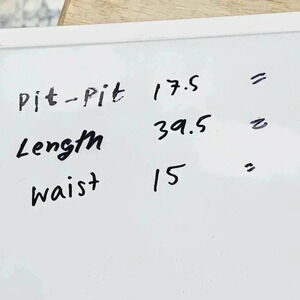 Pit-Pit 17.5 =
Length 39.5 =
Waist 15 =